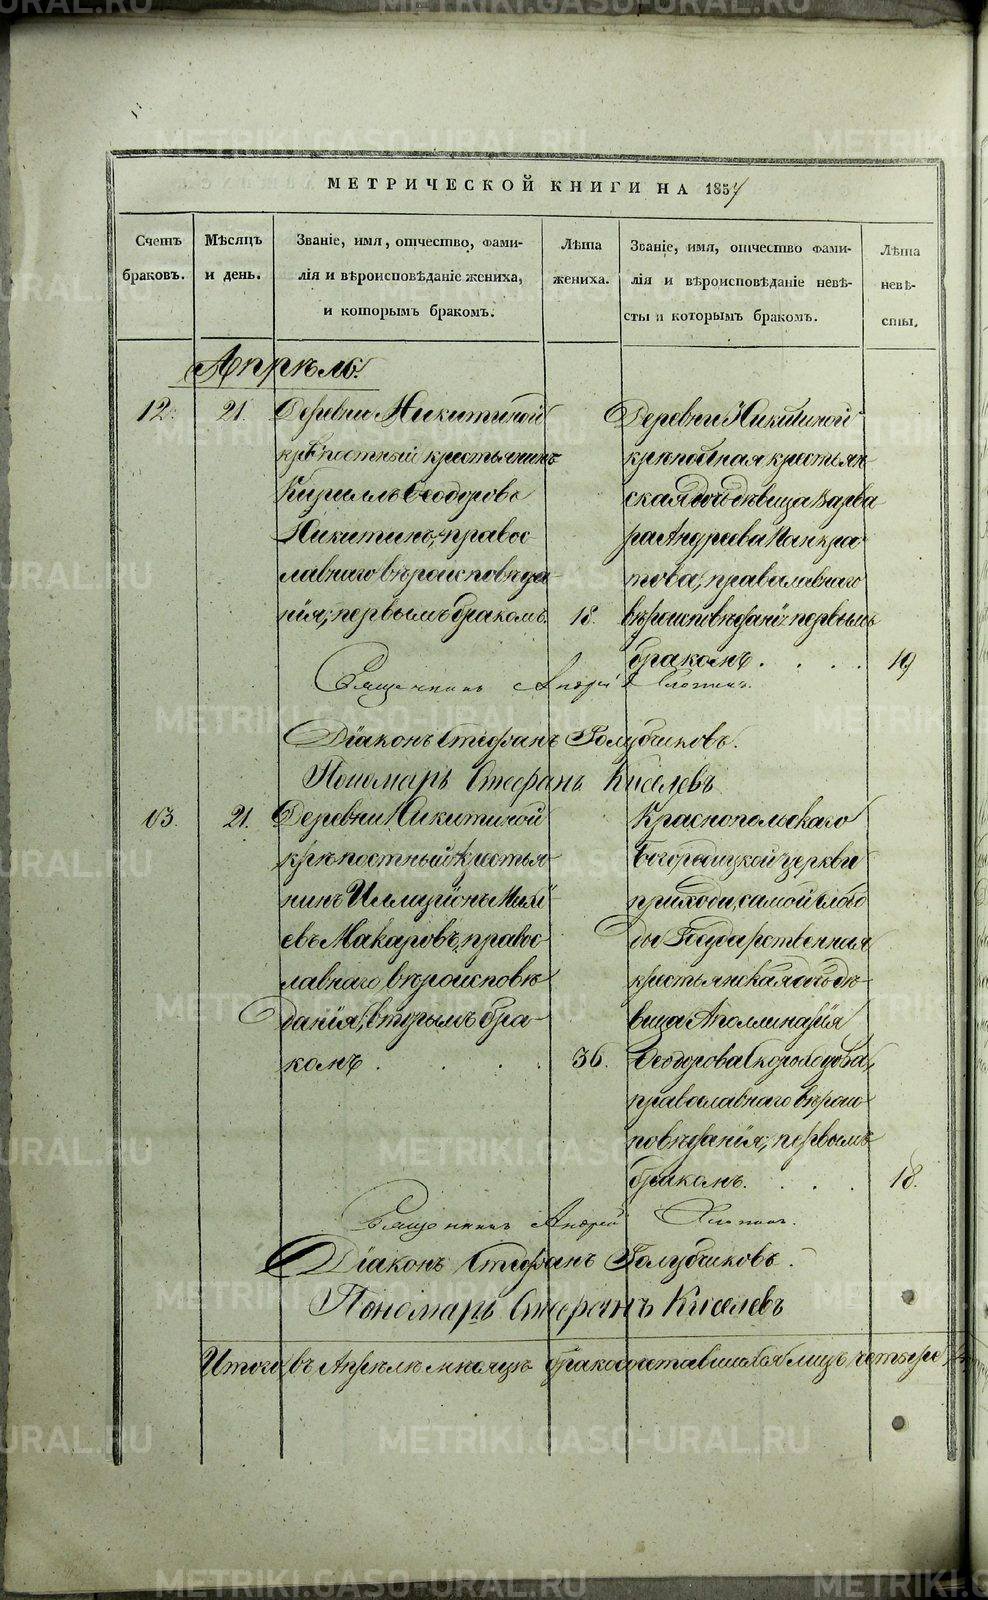 МЕТРИЧЕСКОЙ КНИГИ НА 1857
Счетъ браковъ.
Мѣсяцъ и день.
Званіе, имя, отчество, фами-
лія и вѣроисповѣданіе жениха,
и которымъ бракомъ.
Лѣта жениха.
Званіе, имя, отчество фами-
лія и вѣроисповѣданіе невѣ-
сты и которымъ бракомъ.
Лѣта невѣ-
сты.
Апрѣль.
12.
21
Деревни Никитиной
крѣпостный крестьянинъ
Кириллъ Ѳеодоровъ
Никитинъ, правос
лавнаго вѣроисповѣда
нія, первымъ бракомъ.
18.
Деревни Никитиной
крѣпостная крестьян
ская дочь дѣвица Варва
ра Андреева Панкра
това, православнаго
вѣроисповѣданія первымъ
бракомъ. . . . .
19
Священникъ Андрей
Діаконъ Стефанъ Голубчиковъ.
Пономарь Стефанъ Киселевъ
13.
21.
Деревни Никитиной
крѣпостный крестья
нинъ Илларіонъ Михѣ
евъ Макаровъ, правос
лавнаго вѣроисповѣ
данія, вторымъ бра-
комъ . . . .
36.
Краснопольскаго
Богородицкой церкви
прихода, самой слобо
ды Государственная
крестьянская дочь дѣ-
вица Аполлинарія
Ѳеодорова Скороходова,
православнаго вѣроис
повѣданія, первымъ
бракомъ. . . .
18.
Священникъ Андрей
Діаконъ Стефанъ Голубчиковъ.
Пономарь Стефанъ Киселевъ
Итого въ Апрѣлѣ мѣсяцѣ бракосочетавшихся лицъ четыре
METRIKI.GASO-URAL.RU